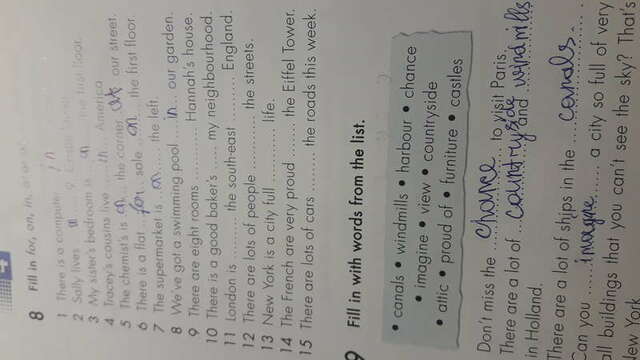 4
8 Fill in for, on, in, at or of.
1 There is a computer in
2 Sally lives in 9
3 My sister's bedroom is on the first floor.
4 Tracey's cousins live in America
5 The chemist's is on the corner at our street.
6 There is a flat for sale on the first floor.
7 The supermarket is on the left.
8 We've got a swimming pool in our garden.
9 There are eight rooms ........... Hannah's house.
10 There is a good baker's ..... my neighbourhood.
11 London is ......... the south-east ......... England.
12 There are lots of people ........... the streets.
13 New York is a city full ........... life.
14 The French are very proud ....... the Eiffel Tower.
15 There are lots of cars ........ the roads this week.
9 Fill in with words from the list.
• canals • windmills • harbour • chance
• imagine • view • countryside
• attic • proud of • furniture • castles
Don't miss the chance to visit Paris.
There are a lot of countryside and windmills
in Holland.
There are a lot of ships in the canals.
Can you imagine a city so full of very
all buildings that you can't see the sky? That's
New York